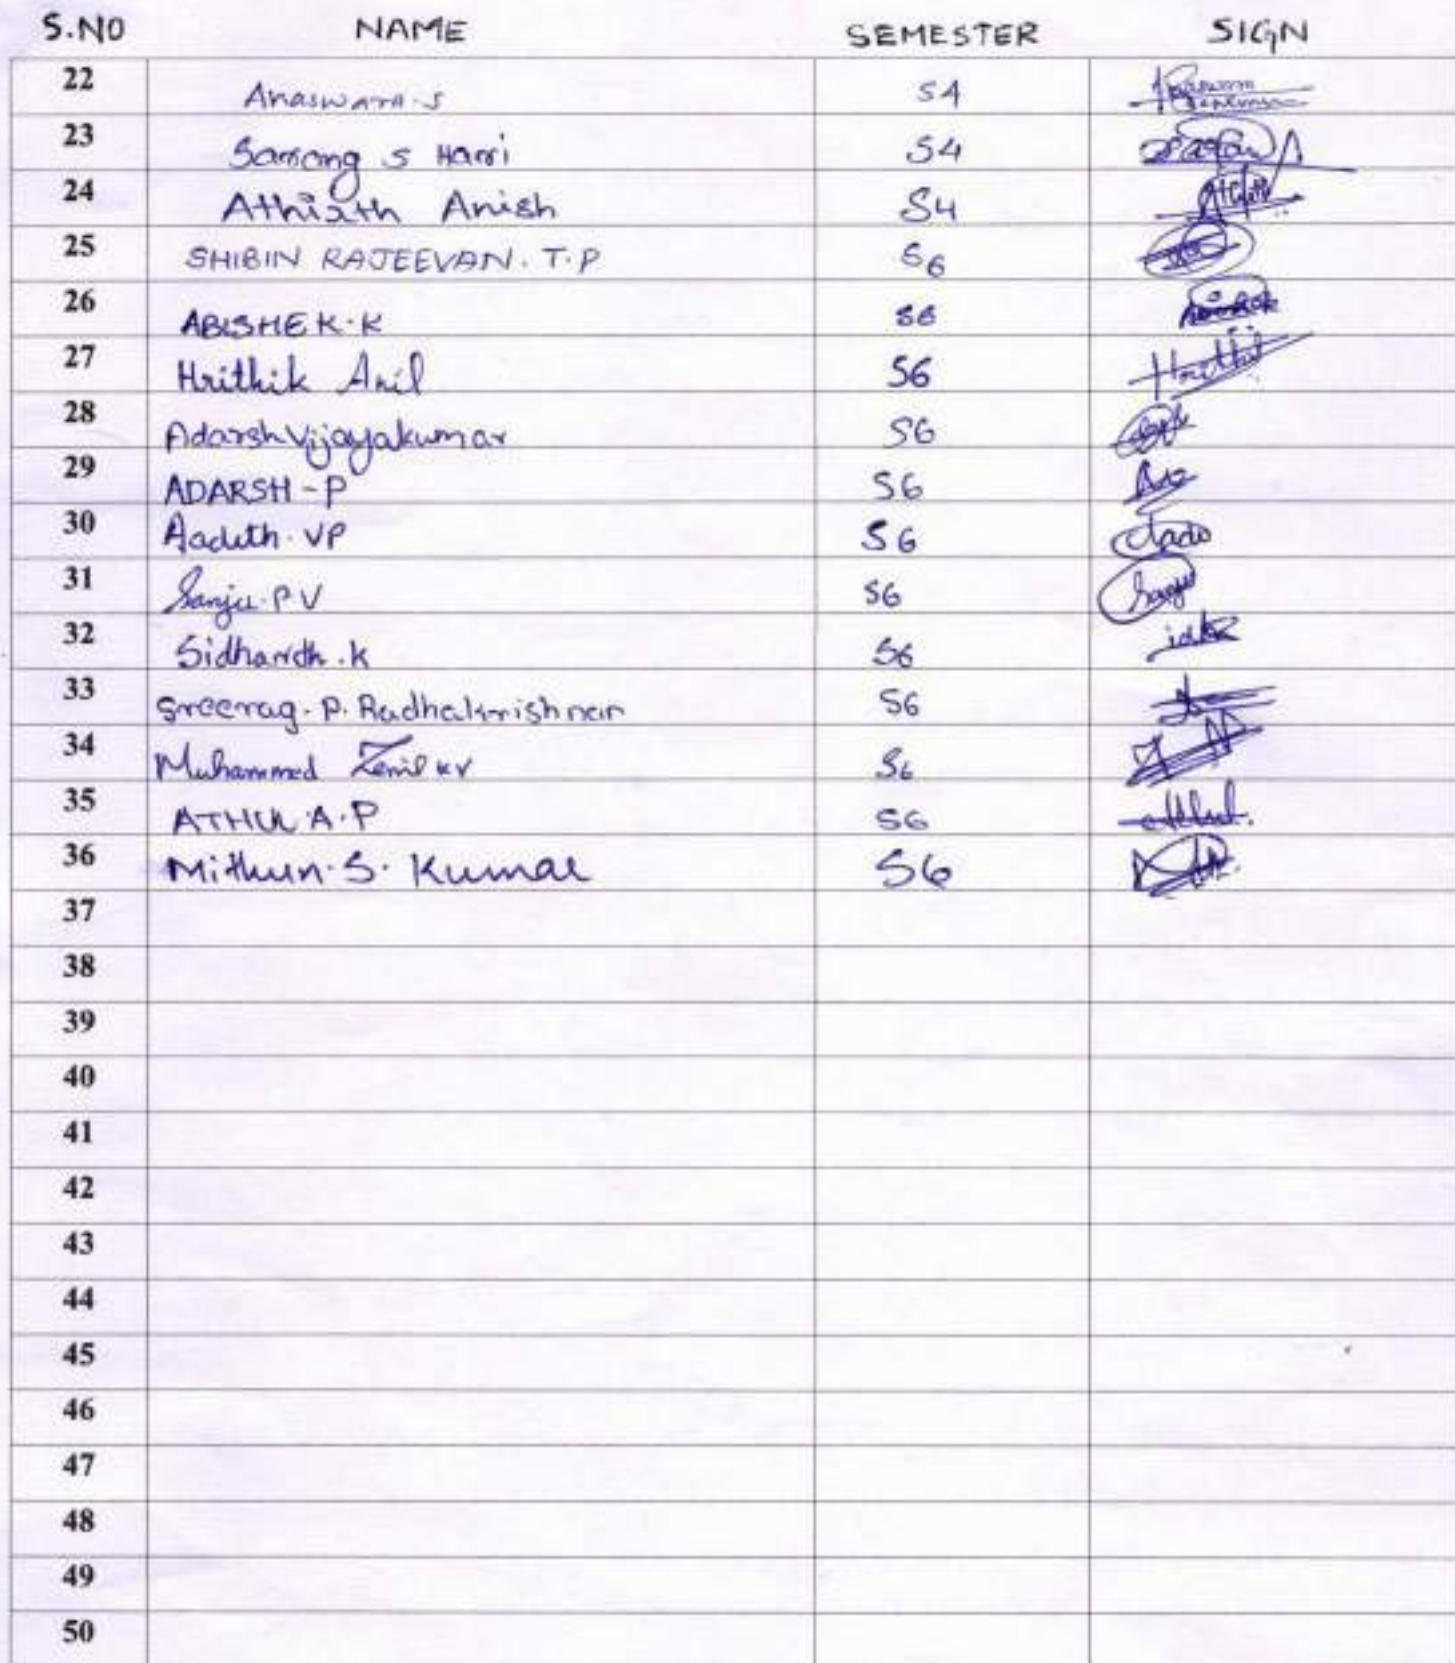 S.NO NAME SEMESTER SIGN
22 Anaswara.S S4
23 Sarang S Hari S4
24 Athirath Anish S4
25 SHIBIN RAJEEVAN. T.P S6
26 ABISHEK.K S6
27 Hrithik Anil S6 Hrithik
28 Adarsh Vijayakumar S6
29 ADARSH-P S6
30 Aadith.VP S6
31 Sanju.PV S6 Sanju
32 Sidharth.K S6
33 Sreerag.P.Radhakrishnan S6
34 Muhammed Zemil KV S6
35 ATHUL.A.P S6 Athul.
36 Mithun.S.Kumar S6
37
38
39
40
41
42
43
44
45
46
47
48
49
50